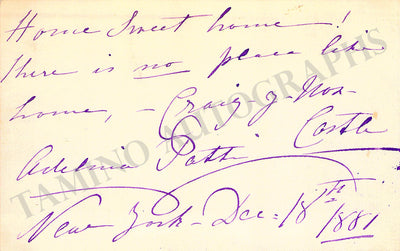 Home Sweet home!
there is no place like
home, - Craig-y-Nos
Castle
Adelina Patti
New York - Dec= 18th 1881
TAMINO AUTOGRAPHS